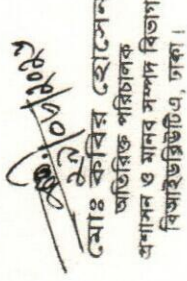 মোঃ কবির হোসেন
অতিরিক্ত পরিচালক
প্রশাসন ও মানব সম্পদ বিভাগ
বিআইডব্লিউটিএ, ঢাকা।